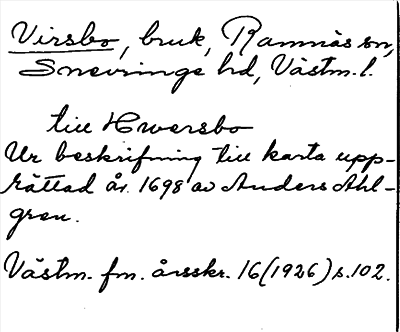 Virsbo, bruk, Ramnäs sn,
Snevringe hd, Västm. l.
till Hwersbo
Ur beskrifning till karta upp-
rättad år 1698 av Anders Ahl-
gren.
Västm. fm. årsskr. 16(1926) s. 102.